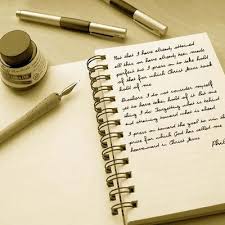 Not that I have already attained
all this or have already been made
perfect but I press on to take hold
of that for which Christ Jesus took
hold of me
Brothers I do not consider myself
yet to have taken hold of it But one
thing I do Forgetting what is behind
and straining toward what is ahead
I press on toward the goal to win the
prize for which God has called me
heavenward in Christ Jesus